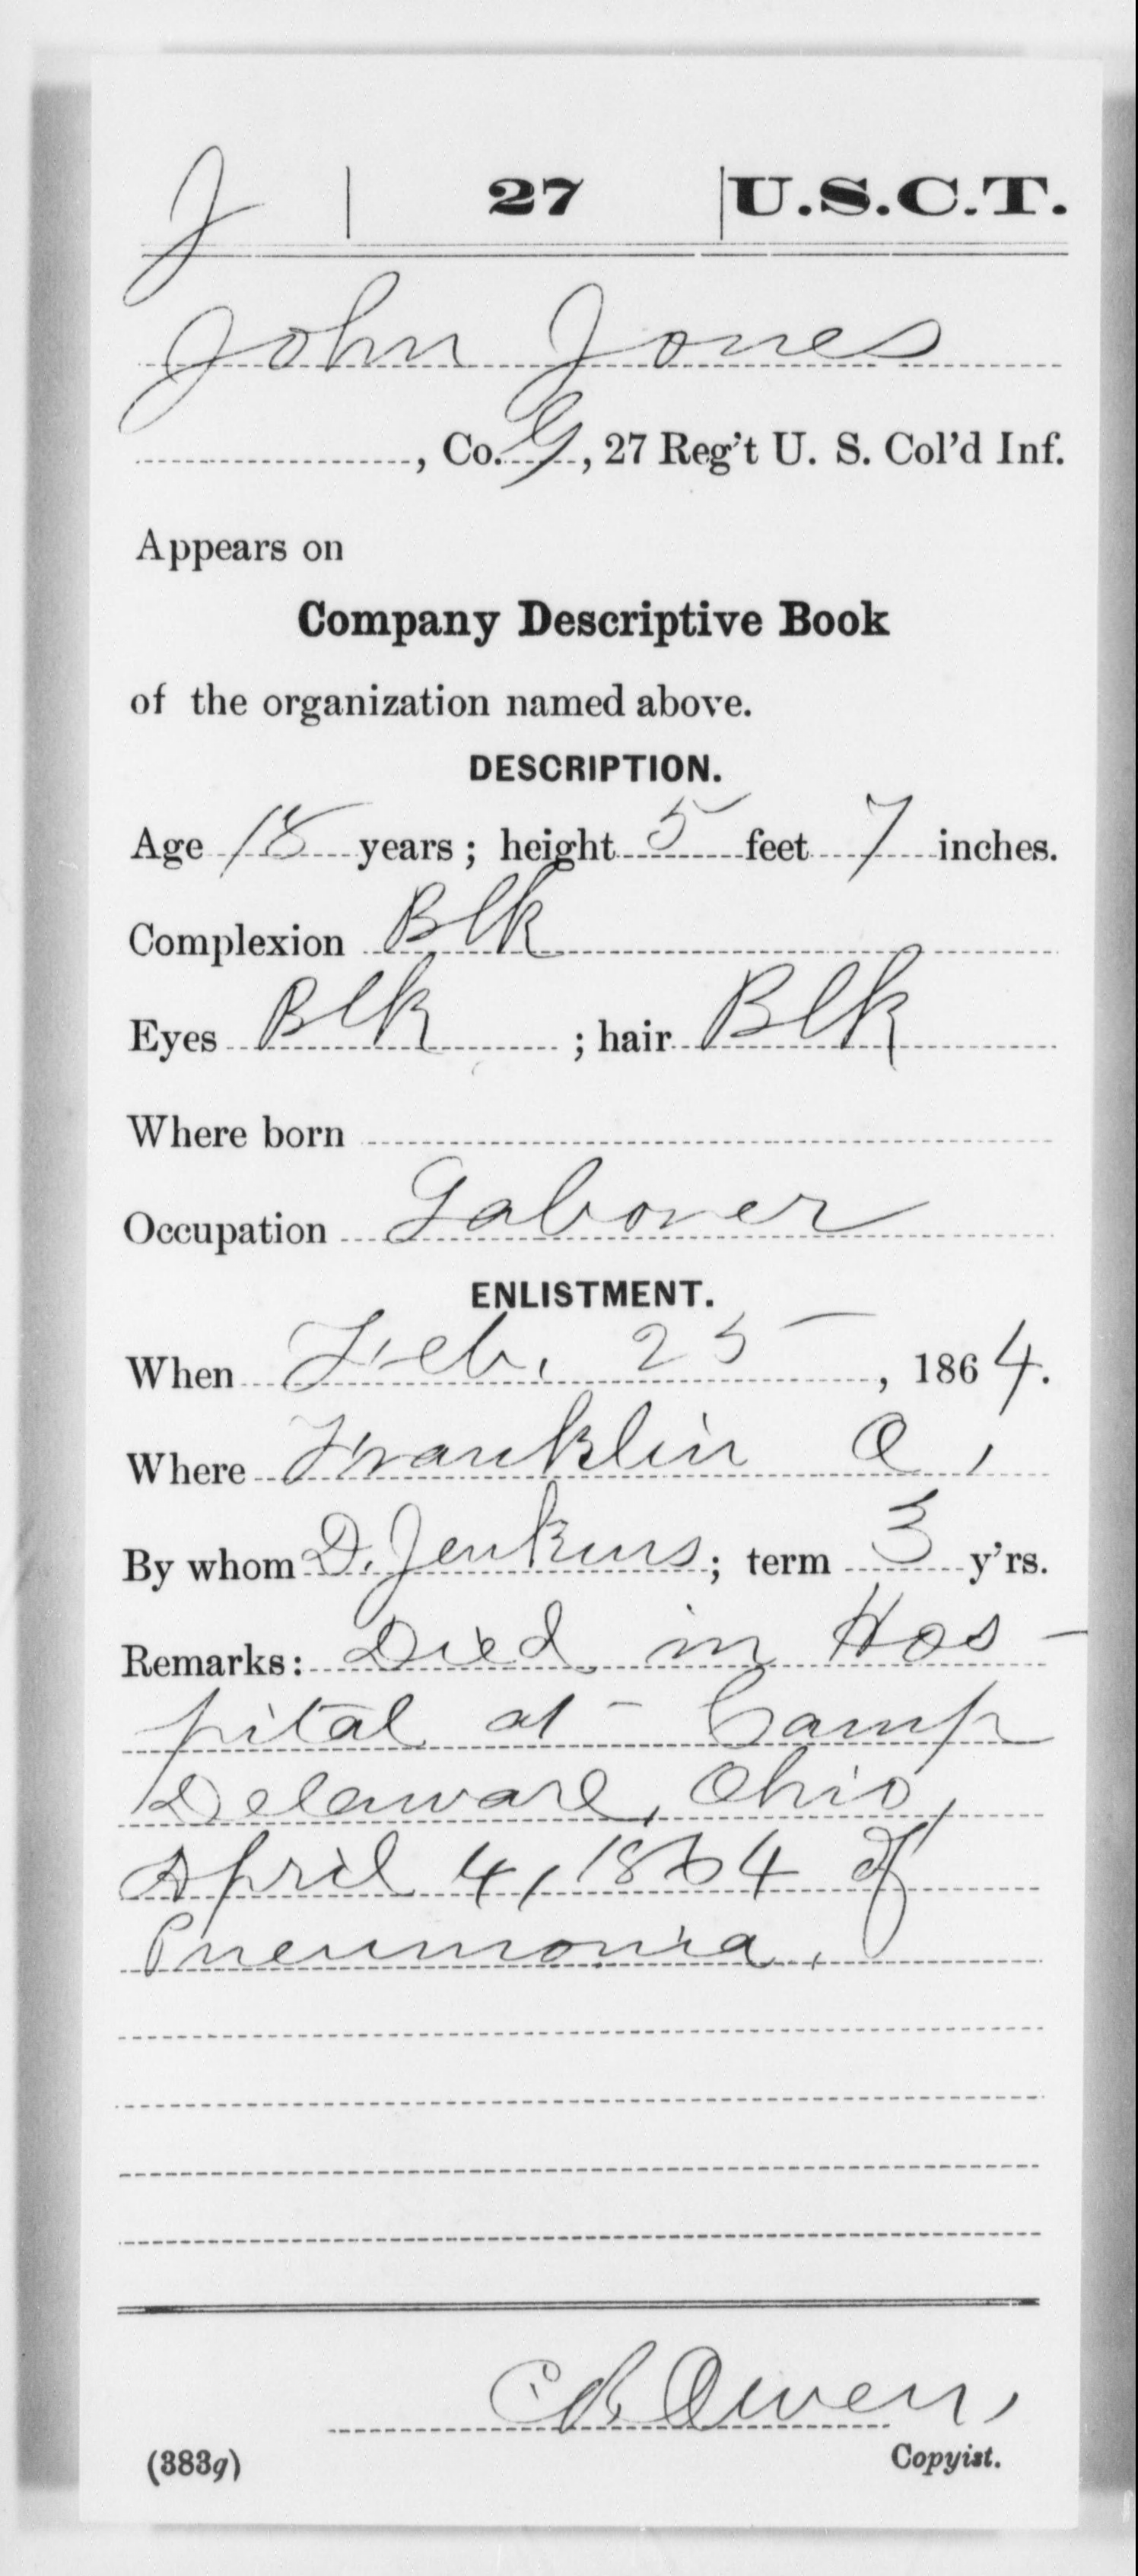 J | 27 | U.S.C.T.
John Jones
, Co. G, 27 Reg't U. S. Col'd Inf.
Appears on
Company Descriptive Book
of the organization named above.
DESCRIPTION.
Age 18 years; height 5 feet 7 inches.
Complexion Blk
Eyes Blk ; hair Blk
Where born
Occupation Laborer
ENLISTMENT.
When Feb. 25, 1864.
Where Franklin O,
By whom D. Jenkins; term 3 y'rs.
Remarks: Died in Hos-
pital at Camp
Delaware, Ohio,
April 4, 1864 of
Pneumonia.
C B Owen,
(383g) Copyist.